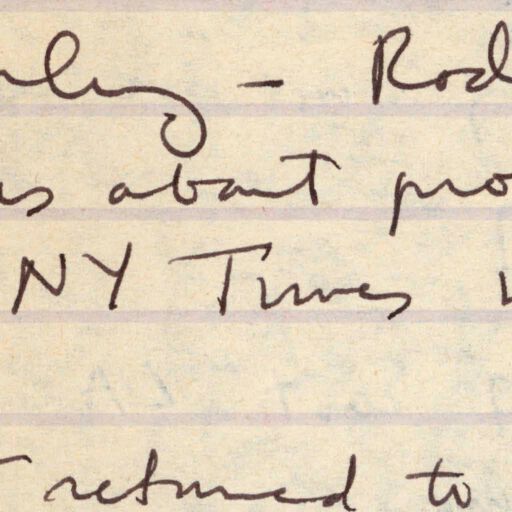 – Rod
about pro
NY Times
returned to